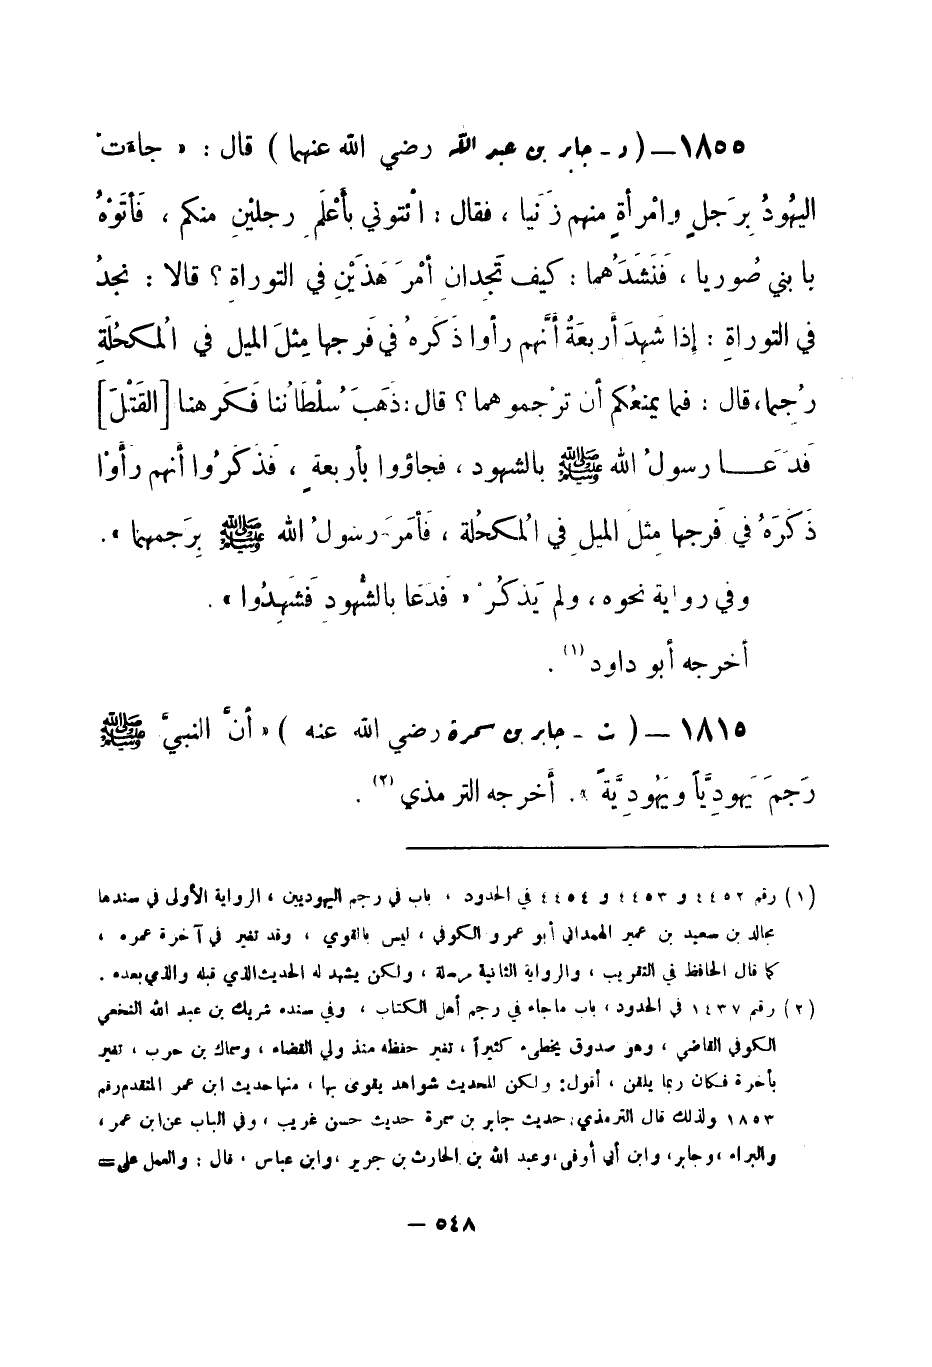 ١٨٥٥ — ( د - جابر بن عبد الله رضي الله عنهما ) قال : « جاءت
اليهُودُ بِرَجلٍ وامْرأةٍ منهم زَنَيا ، فقال : ائتوني بأَعْلَمِ رجليْنِ منكم ، فَأتَوْهُ
بابني صُوريا ، فَنَشَدَهُما : كيف تَجدان أمْرَ هَذَيْنِ في التوراةِ ؟ قالا : نجدُ
في التوراةِ : إذا شَهِدَ أربعَةُ أنَّهم رأوا ذَكَرهُ في فَرجها مِثلَ الميل في المُكحُلَةِ
رُجِما، قال : فما يمنعُكم أن ترْجموهما ؟ قال: ذَهَبَ سُلْطَانُنا فَكَرهنا [القَتْلَ]
فَدَعَا رسولُ الله ﷺ بالشهود ، فجاؤوا بأربعةٍ ، فَذكَرُوا أنهم رأَوْا
ذَكَرَهُ في فَرجها مثلَ الميلِ في المُكحُلة ، فَأمَرَ رسولُ الله ﷺ بِرَجمهما » .
وفي رواية نحوه ، ولم يَذكُرْ « فَدَعَا بالشُّهودِ فَشَهِدُوا » .
أخرجه أبو داود (١) .
١٨١٥ — ( ت - جابر بن سمرة رضي الله عنه ) « أنَّ النبيَّ ﷺ
رَجمَ يَهوديَّاً ويَهُودِيَّةً » . أخرجه الترمذي (٢) .
(١) رقم ٤٤٥٢ و ٤٤٥٣ و ٤٤٥٤ في الحدود ، باب في رجم اليهوديين ، الرواية الأولى في سندها
مجالد بن سعيد بن عمير الهمداني أبو عمرو الكوفي ، ليس بالقوي ، وقد تغير في آخرة عمره ،
كما قال الحافظ في التقريب ، والرواية الثانية مرسلة ، ولكن يشهد له الحديث الذي قبله والذي بعده .
(٢) رقم ١٤٣٧ في الحدود ، باب ما جاء في رجم أهل الكتاب ، وفي سنده شريك بن عبد الله النخعي
الكوفي القاضي ، وهو صدوق يخطىء كثيراً ، تغير حفظه منذ ولي القضاء ، وسماك بن حرب ، تغير
بأخرة فكان ربما يلقن ، أقول : ولكن للحديث شواهد يقوى بها ، منها حديث ابن عمر المتقدم رقم
١٨٥٣ ولذلك قال الترمذي : حديث جابر بن سمرة حديث حسن غريب ، وفي الباب عن ابن عمر ،
والبراء ، وجابر ، وابن أبي أوفى ، وعبد الله بن الحارث بن جرير ، وابن عباس ، قال : والعمل على =
٥٤٨ —